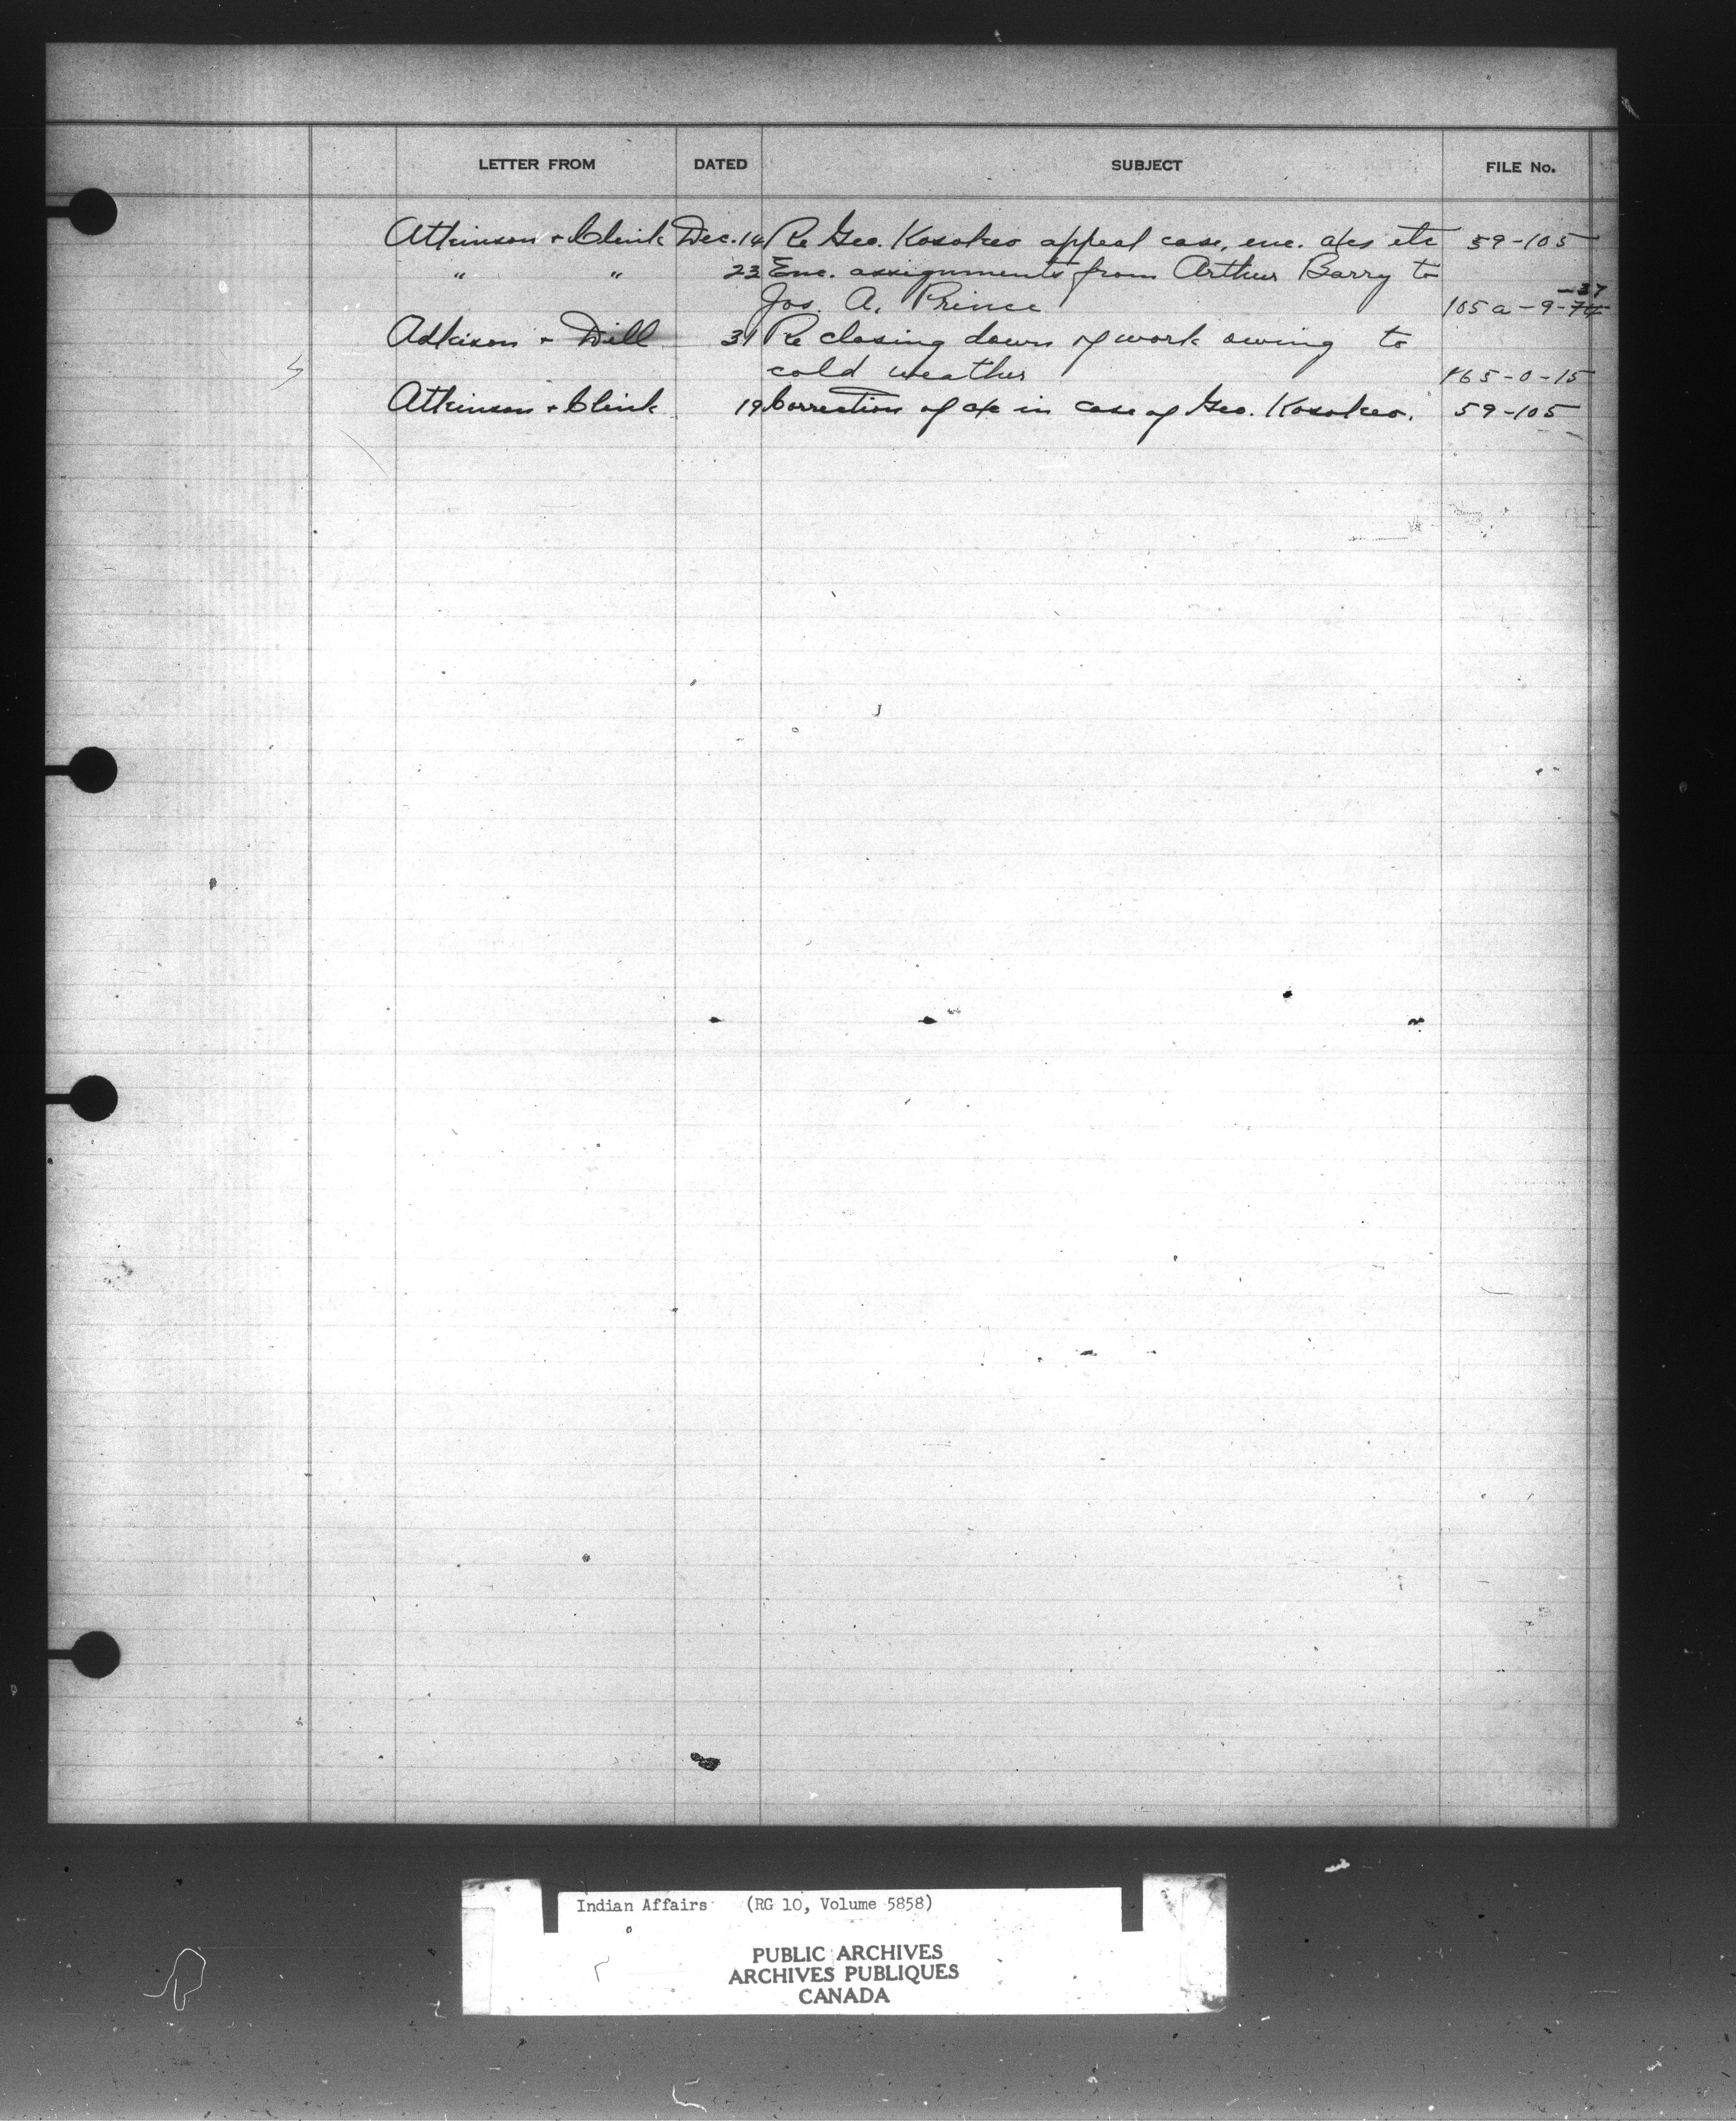 LETTER FROM DATED SUBJECT FILE No.
Atkinson + Clink Dec. 14 Re Geo. Kosokeo appeal case, enc. a/cs etc 59-105
" " 23 Enc. assignments from Arthur Barry to
Jos. A. Prince 105a-9-74 -37
Adkison + Dill 31 Re closing down of work owing to
cold weather 165-0-15
Atkinson + Clink 19 Correction of a/c in case of Geo. Kosokeo. 59-105
Indian Affairs (RG 10, Volume 5858)
PUBLIC ARCHIVES
ARCHIVES PUBLIQUES
CANADA